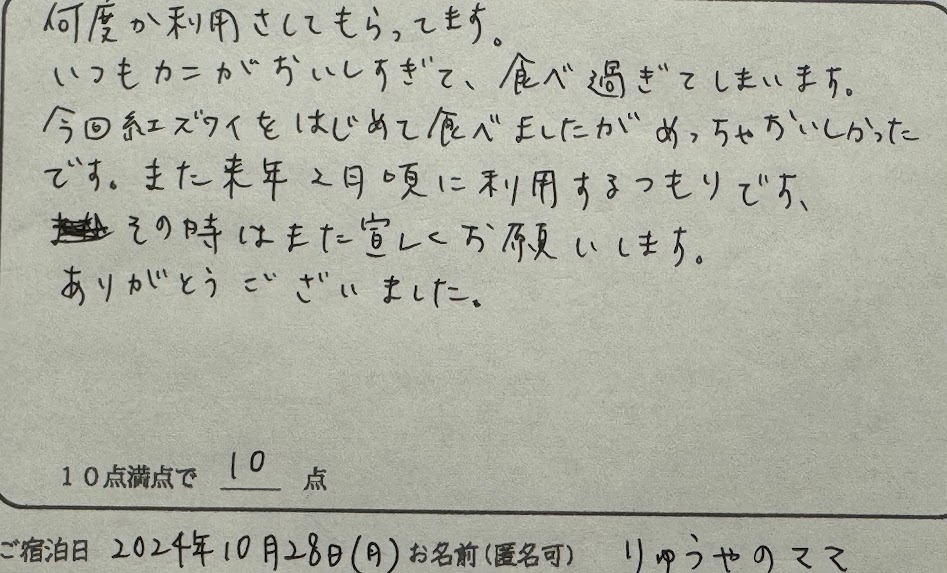 何度か利用さしてもらってます。
いつもカニがおいしすぎて、食べ過ぎてしまいます。
今回紅ズワイをはじめて食べましたがめっちゃおいしかった
です。また来年2月頃に利用するつもりです、
その時はまた宜しくお願いします。
ありがとうございました。
10点満点で 10 点
ご宿泊日 2024年10月28日(月) お名前(匿名可) りゅうやのママ